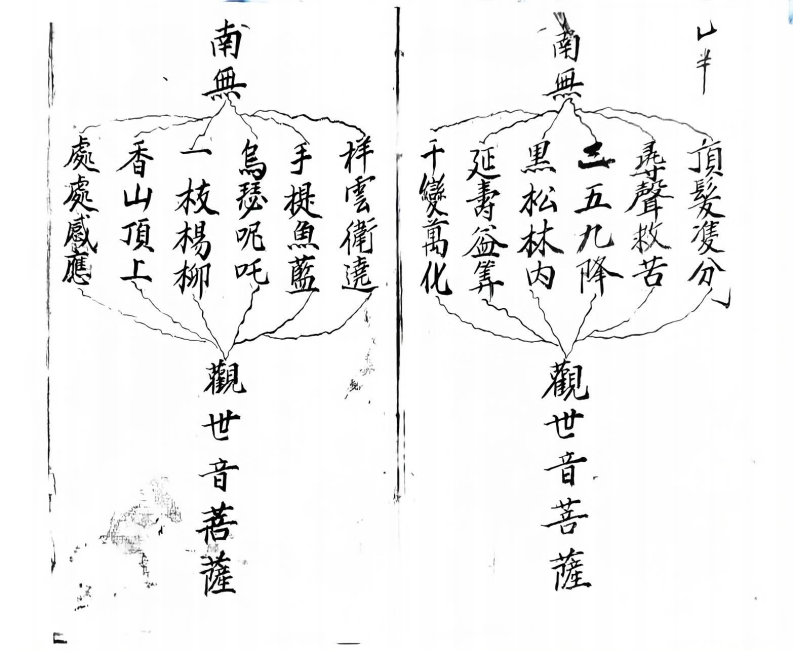 半
南無
頂髮隻分
尋聲救苦
三五九降
黑松林内
延壽益筭
千變萬化
觀世音菩薩
南無
祥雲衛遶
手提魚藍
烏瑟呢吒
一枝楊柳
香山頂上
處處感應
觀世音菩薩